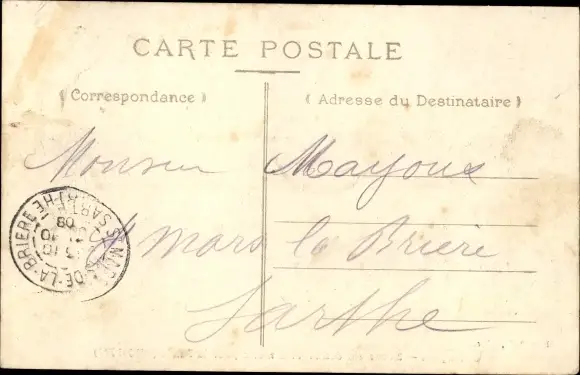 CARTE POSTALE
(Correspondance)
(Adresse du Destinataire)
Monsieur Mayoux
St mars la Briere
Sarthe
DE-LA-BRIERE
SARTHE